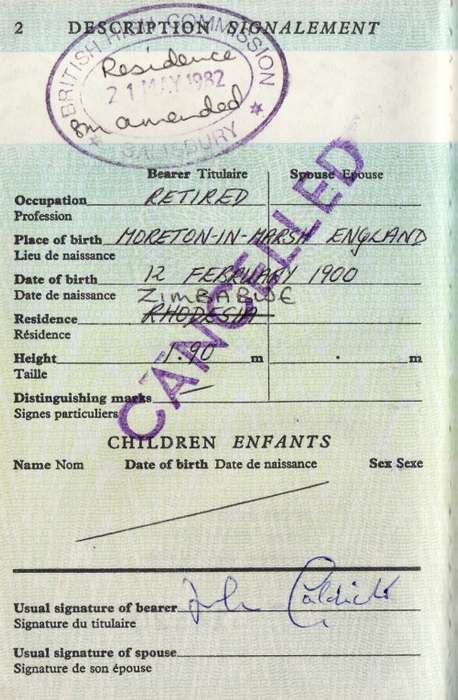 2 DESCRIPTION SIGNALEMENT
BRITISH HIGH COMMISSION
Residence
21 MAY 1982
amended
SALISBURY
Bearer Titulaire Spouse Epouse
Occupation RETIRED
Profession
Place of birth MORETON-IN-MARSH ENGLAND
Lieu de naissance
Date of birth 12 FEBRUARY 1900
Date de naissance ZIMBABWE
Residence RHODESIA
Résidence
Height 1.90 m . m
Taille
Distinguishing marks —
Signes particuliers
CANCELLED
CHILDREN ENFANTS
Name Nom Date of birth Date de naissance Sex Sexe
Usual signature of bearer John
Signature du titulaire
Usual signature of spouse
Signature de son épouse